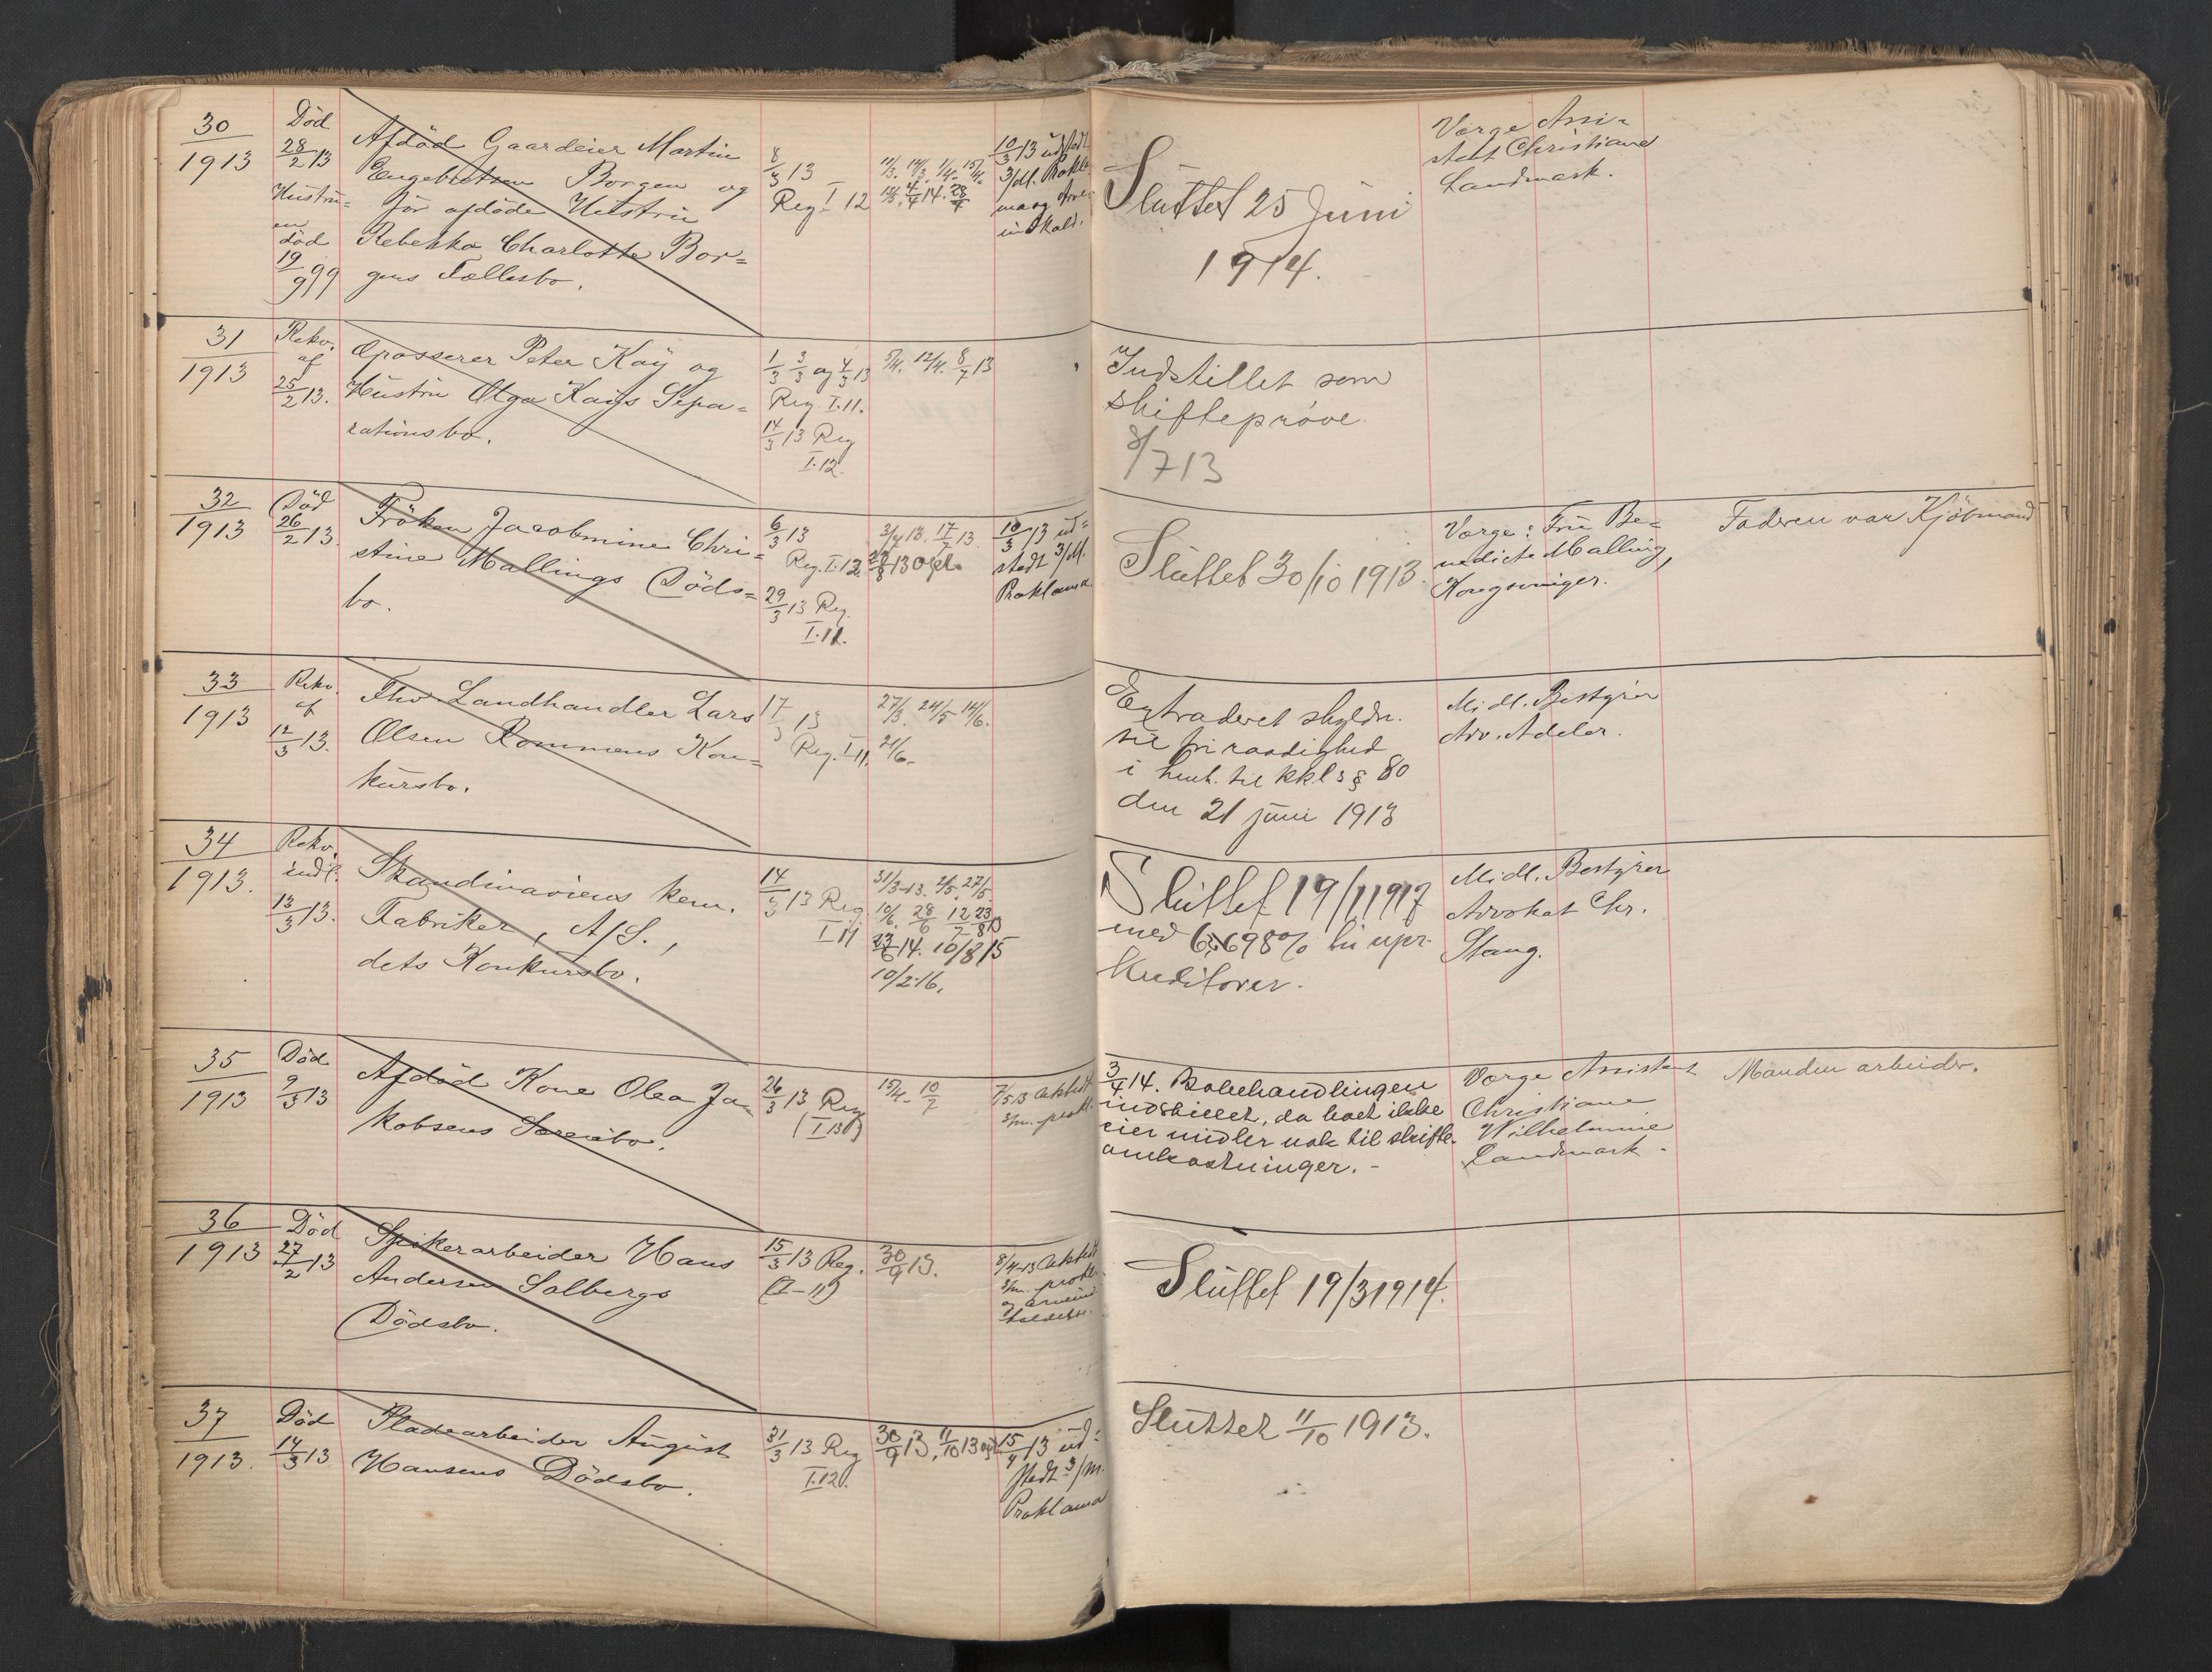 30
1913
Död
28/2 13
Hustru=
en
död
19/9 99
Afdöd Gaardeier Martin
Engebretsen Borgen og
för afdöde Hustru
Rebekka Charlotte Bor=
gens Fællesbo.
8/3 13
Reg. I 12
11/3. 14/3. 1/4. 15/4.
4/4 14.
10/3 13 udstedt
3/M. Prokla
ma og Arve
indkald.
Sluttet 25 Juni
1914.
Værge Assi=
stent Christiane
Landmark.
31
1913
Rekv.
af
25/2 13.
Opasserer Peter Kay og
Hustru Olga Kays Sepa=
rationsbo.
1/3 3/3 og 4/3 13
Reg. I. 11.
14/3 13 Reg
I. 12.
5/4. 12/4. 8/7 13
Indstillet som
skifteprøve
8/7 13
32
1913
Död
26/2 13.
Fröken Jacobmine Chri=
stine Mallings Döds=
bo.
6/3 13
Reg. I. 12.
29/3 13 Reg.
I. 11.
3/4 13. 17/7 13
10/3 13 ud=
stedt 3/M.
Proklama
Sluttet 30/10 1913.
Værge: Fru Be=
nedicte Malling,
Kongsvinger.
Faderen var Kjöbmand
33
1913
Rekv.
af
12/3 13.
Fhv. Landhandler Lars
Olsen Rommens Kon=
kursbo.
17/3 13
Reg. I 11.
27/3. 24/5 14/6.
21/6.
Extraderet skyldn.
til fri raadighed
i henh. til kkl s § 80
den 21 juni 1913
Midl. Bestyrer
Adv. Adeler.
34
1913.
Rekv.
indl.
13/3 13.
Skandinaviens kem.
Fabriker, A/S.,
dets Konkursbo.
14/3 13 Reg
I 11
31/3-13. 2/5. 27/5.
10/6. 28/6 12/7 23/8 13
23/6 14. 10/8 15
10/2-16.
Sluttet 19/1 1917
med 6,698% til upr.
Kreditorer.
Midl. Bestyrer
Advokat Chr.
Stang.
35
1913
Död
9/3 13
Afdöd Kone Olea Ja=
kobsens Særeiebo.
26/3 13 Reg
(I 13)
15/4. 10/7
7/5 13 utstedt
3/m. prokl.
3/4 14. Bobehandlingen
indstillet, da boet ikke
eier midler nok til skifte-
omkostninger. -
Værge Assistent
Christiane
Wilhelmine
Landmark.
Manden arbeider.
36
1913
Död
27/2 13
Spikerarbeider Hans
Andersen Solbergs
Dödsbo.
15/3 13 Reg.
(I-11)
30/9 13.
8/4-13 utstedt
3/m. prokl.
og arveind
kaldelse.
Sluttet 19/3 1914.
37
1913.
Död
14/3 13
Pladearbeider August
Hansens Dödsbo.
31/3 13 Reg
I. 12.
30/9 13, 11/10 13
15/4 13 ud=
stedt 3/m.
Proklama
Sluttet 11/10 1913.